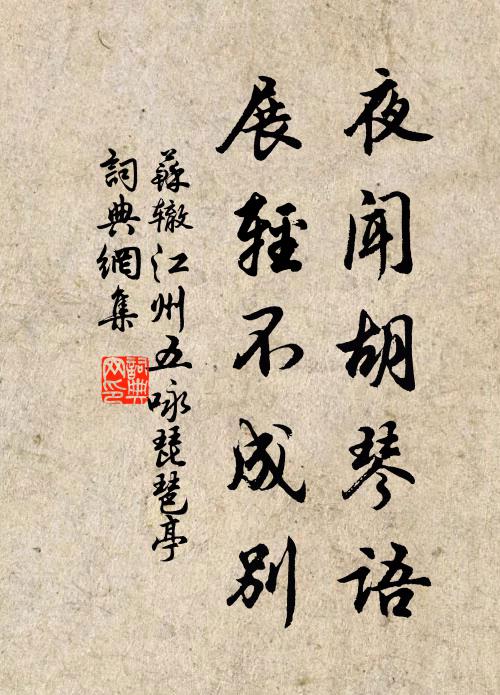 夜闻胡琴语
展輕不成别
蘇辙江州五咏琵琶亭
詞典網集
詞典
网印